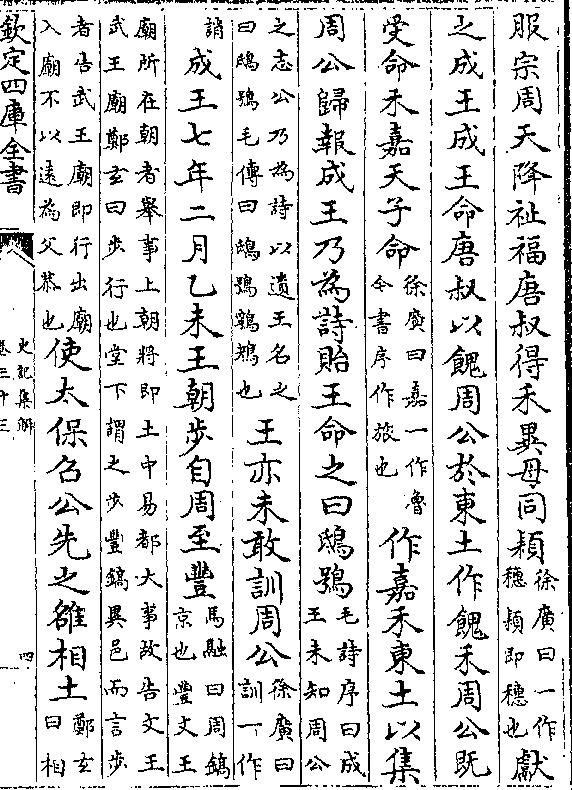 服宗周天降祉福唐叔得禾異母同穎徐廣曰一作穗穎即穗也獻
之成王成王命唐叔以餽周公於東土作餽禾周公既
受命禾嘉天子命徐廣曰嘉一作魯今書序作旅也作嘉禾東土以集
周公歸報成王乃為詩貽王命之曰鴟鴞毛詩序曰成王未知周公
之志公乃為詩以遺王名之曰鴟鴞毛傳曰鴟鴞鸋鴂也王亦未敢訓周公徐廣曰訓一作
誚成王七年二月乙未王朝步自周至豐馬融曰周鎬京也豐文王
廟所在朝者舉事上朝將即土中易都大事故告文王武王廟鄭玄曰步行也堂下謂之步豐鎬異邑而言步
者告武王廟即行出廟入廟不以遠為父恭也使太保召公先之雒相土鄭玄曰相
欽定四庫全書
史記集解
卷三十三
四